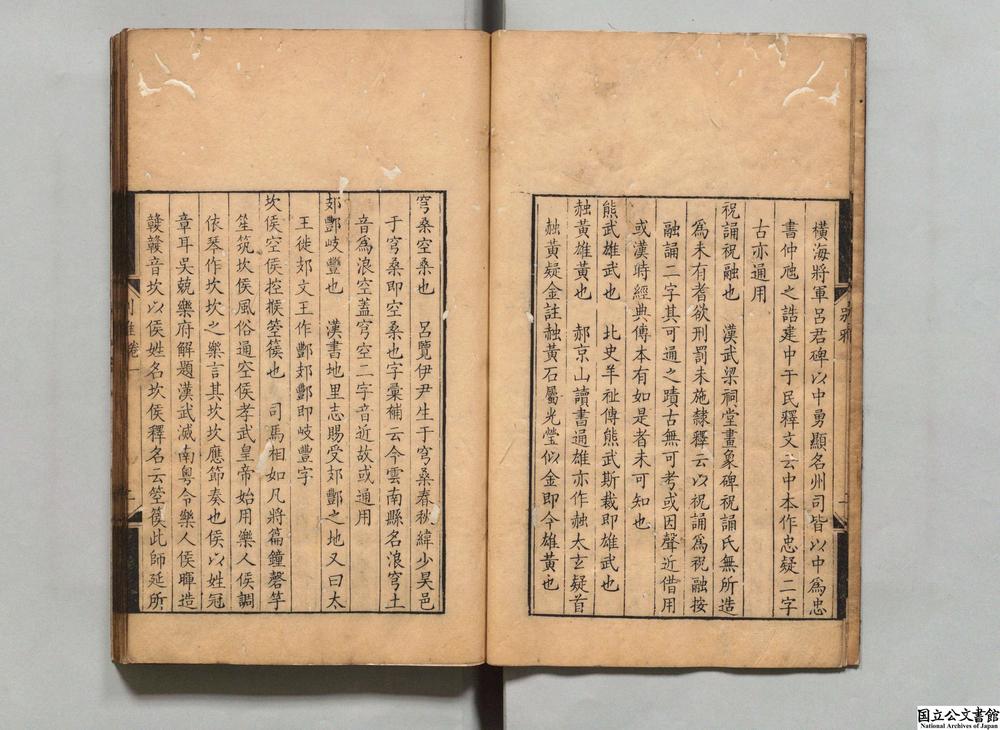 橫海將軍呂君碑以中勇顯名州司皆以中爲忠
書仲虺之誥建中于民釋文云中本作忠疑二字
古亦通用
祝誦祝融也　漢武梁祠堂畫象碑祝誦氏無所造
爲未有耆欲刑罰未施隸釋云以祝誦爲祝融按
融誦二字其可通之蹟古無可考或因聲近借用
或漢時經典傳本有如是者未可知也
熊武雄武也　北史羊祉傳熊武斯裁即雄武也
䧺黃雄黃也　郝京山讀書通雄亦作䧺太玄疑首
䧺黃疑金註䧺黃石屬光瑩似金即今雄黃也
穹桑空桑也　呂覽伊尹生于穹桑春秋緯少昊邑
于穹桑即空桑也字彙補云今雲南縣名浪穹土
音爲浪空蓋穹空二字音近故或通用
郊酆岐豐也　漢書地里志賜受郊酆之地又曰太
王徙郊文王作酆郊酆即岐豐字
坎侯空侯控揬箜篌也　司馬相如凡將篇鐘磬竽
笙筑坎侯風俗通空侯孝武皇帝始用樂人侯調
依琴作坎坎之樂言其坎坎應節奏也侯以姓冠
章耳吳兢樂府解題漢武滅南粤令樂人侯暉造
竷竷音坎以侯姓名坎侯釋名云箜篌此師延所
別雅卷一
国立公文書館
National Archives of Japan